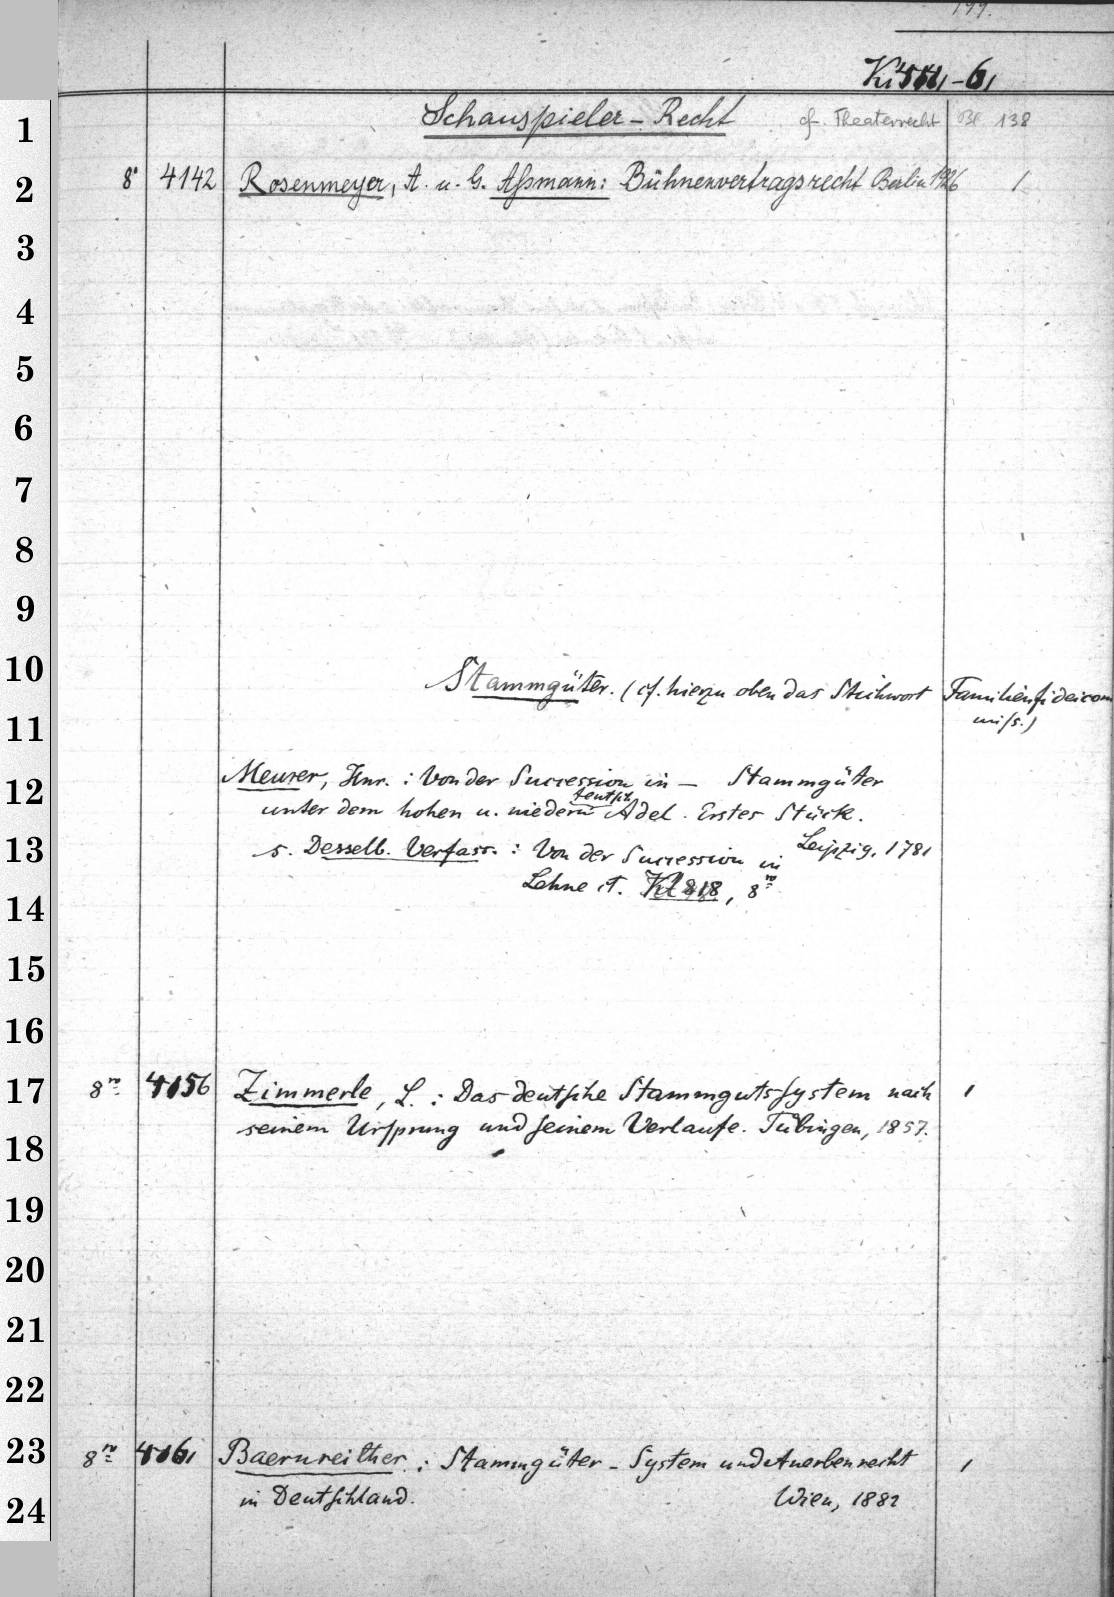 199.
Schauspieler-Recht cf. Theaterrecht Bl. 138
8° 4142 Rosenmeyer, A. u. G. Aßmann: Bühnenvertragsrecht Berlin 1926 1
Stammgüter. (cf. hierzu oben das Stichwort Familienfideicom
miss.)
Meurer, Hnr. : Von der Succession in – Stammgüter
unter dem hohen u. niedern teutsch. Adel. Erstes Stück.
Leipzig, 1781
s. Desselb. Verfass. : Von der Succession in
Lehne ct. Kl 818, 8ro
8ro 4156 Zimmerle, L. : Das deutsche Stammgutssystem nach 1
seinem Ursprung und seinem Verlaufe. Tübingen, 1857.
8ro 4161 Baernreither : Stammgüter-System und Anerbenrecht 1
in Deutschland. Wien, 1882
1
2
3
4
5
6
7
8
9
10
11
12
13
14
15
16
17
18
19
20
21
22
23
24